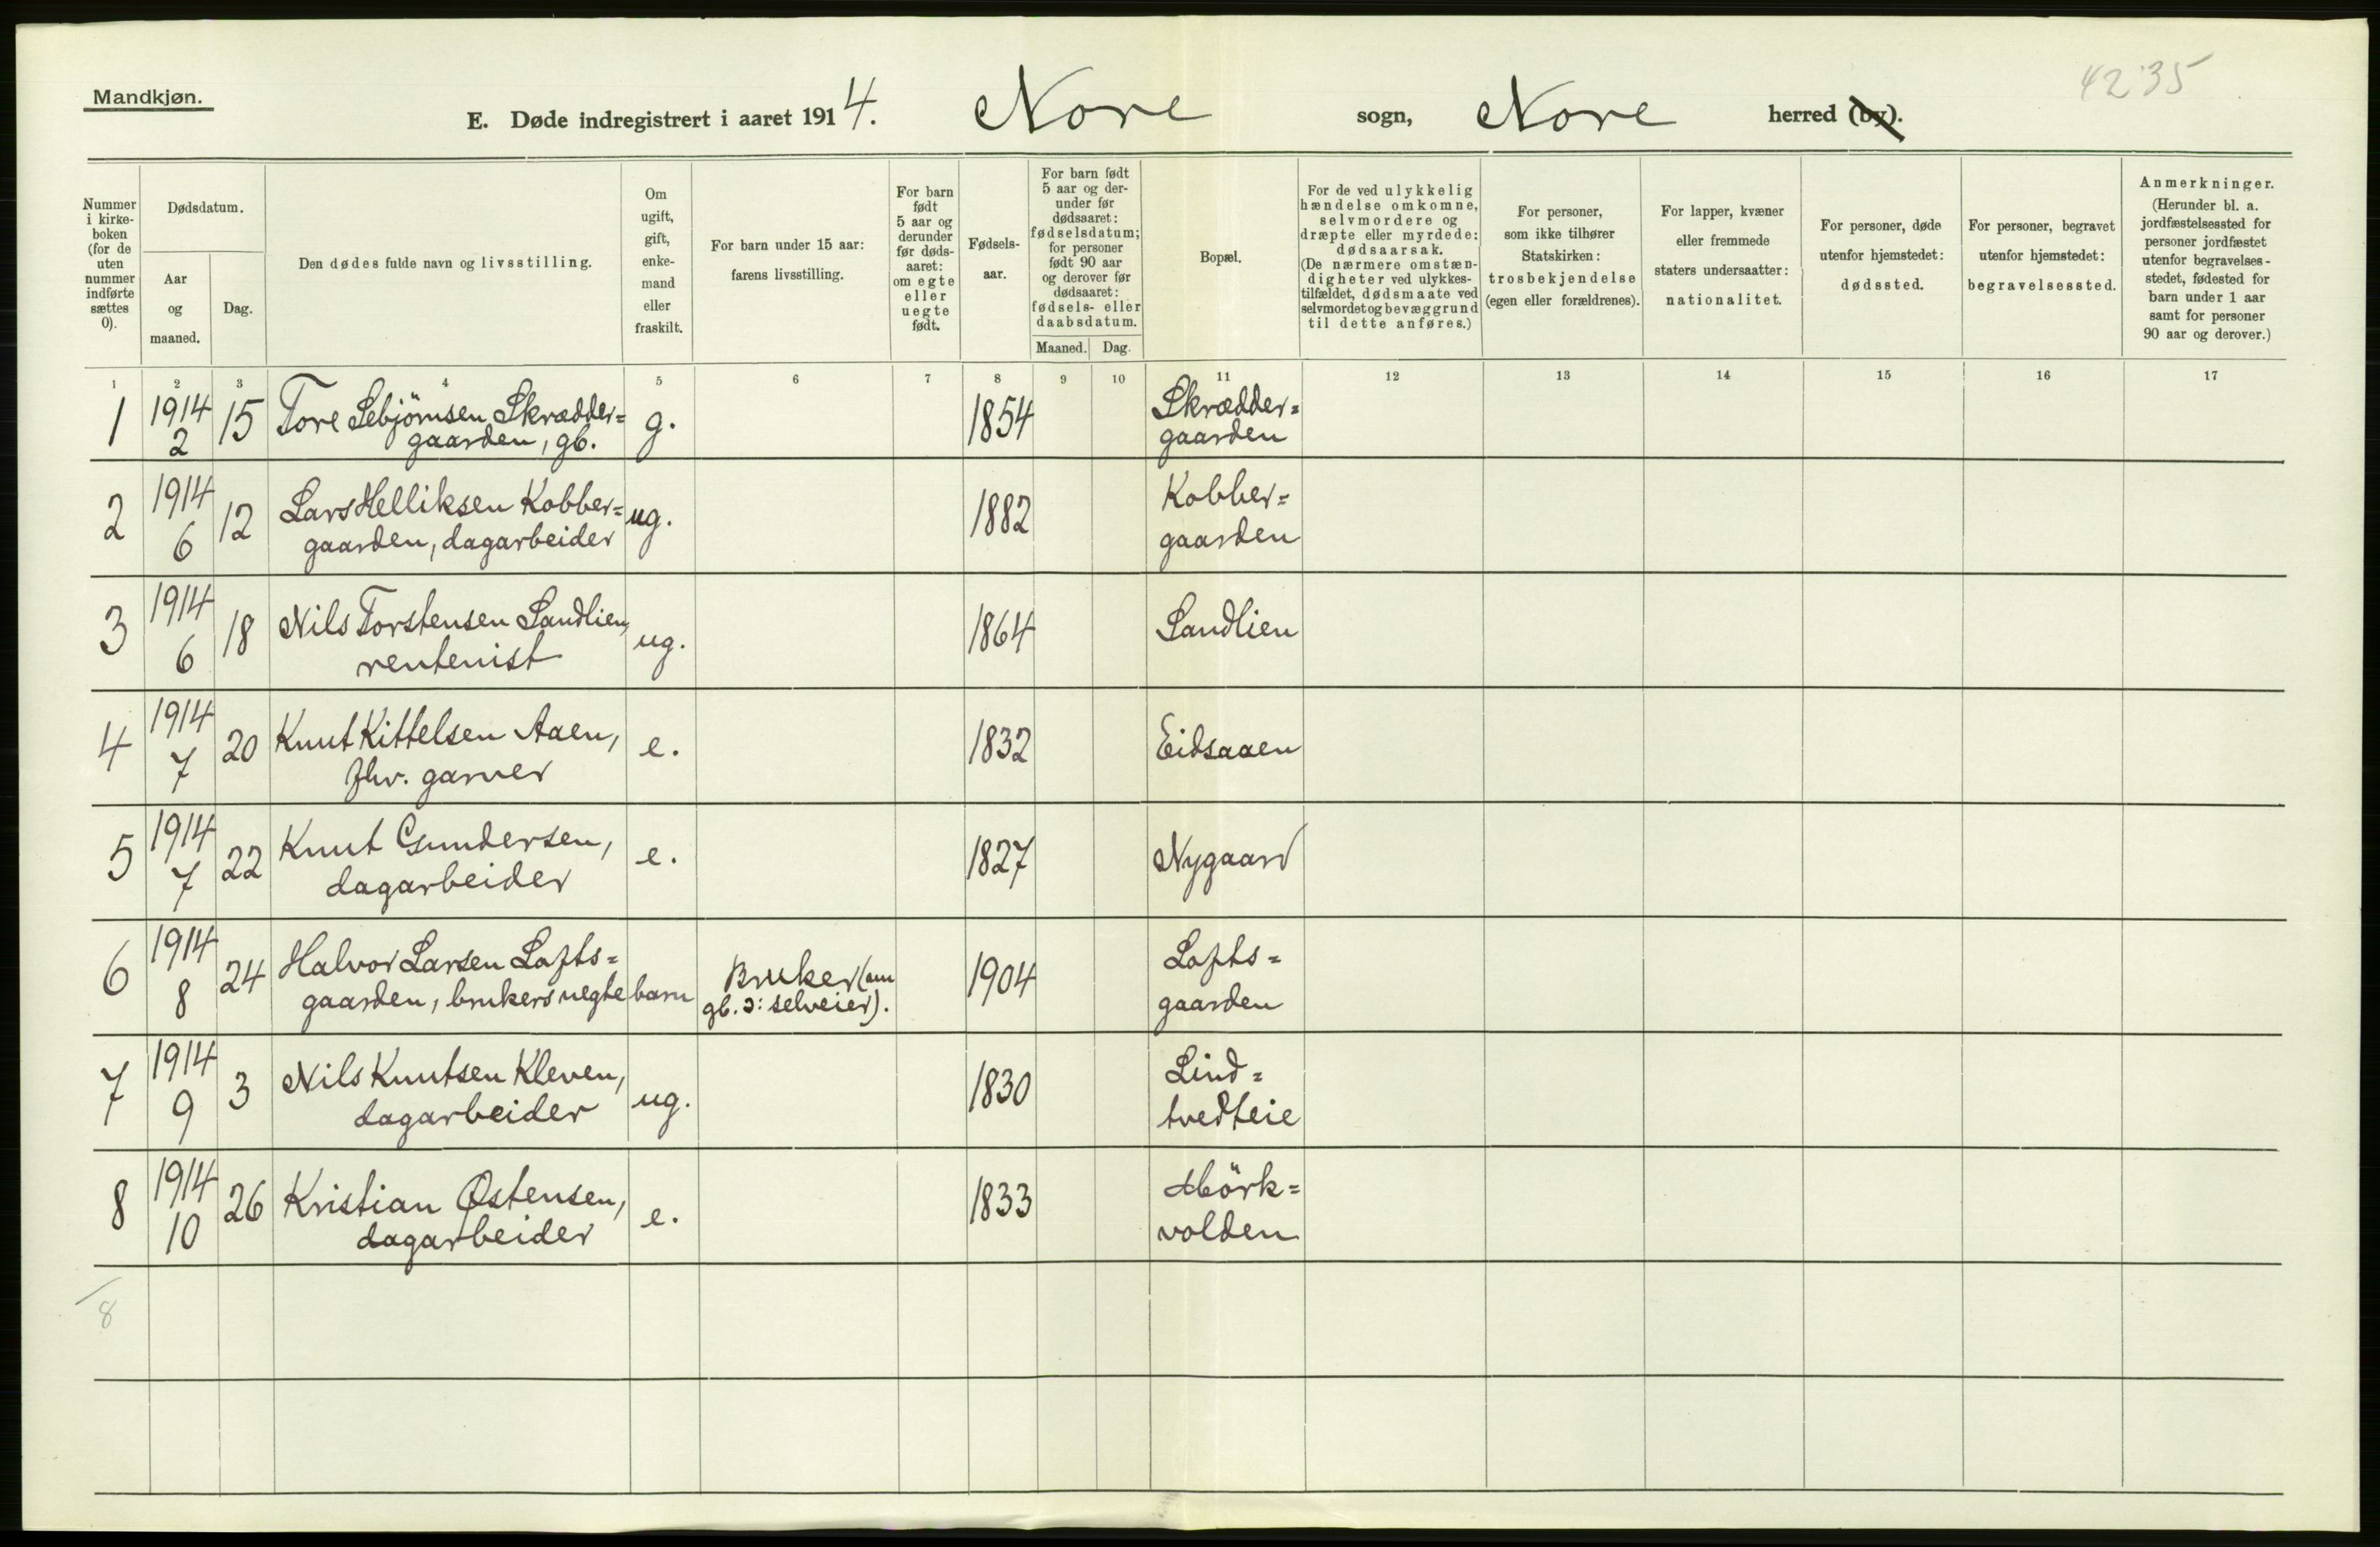 Mandkjøn.
E. Døde indregistrert i aaret 1914. Nore sogn, Nore herred (by).
4235
Nummer i kirke-boken (for de uten nummer indførte sættes 0).
Dødsdatum.
Aar og maaned.
Dag.
Den dødes fulde navn og livsstilling.
Om ugift, gift, enke-mand eller fraskilt.
For barn under 15 aar: farens livsstilling.
For barn født 5 aar og derunder før døds-aaret: om egte eller uegte født.
Fødsels-aar.
For barn født 5 aar og der-under før dødsaaret: fødselsdatum; for personer født 90 aar og derover før dødsaaret: fødsels- eller daabsdatum.
Maaned. Dag.
Bopæl.
For de ved ulykkelig hændelse omkomne, selvmordere og dræpte eller myrdede: dødsaarsak. (De nærmere omstæn-digheter ved ulykkes-tilfældet, dødsmaate ved selvmordet og bevæggrund til dette anføres.)
For personer, som ikke tilhører Statskirken: trosbekjendelse (egen eller forældrenes).
For lapper, kvæner eller fremmede staters undersaatter: nationalitet.
For personer, døde utenfor hjemstedet: dødssted.
For personer, begravet utenfor hjemstedet: begravelsessted.
Anmerkninger. (Herunder bl. a. jordfæstelsessted for personer jordfæstet utenfor begravelses-stedet, fødested for barn under 1 aar samt for personer 90 aar og derover.)
1 2 3 4 5 6 7 8 9 10 11 12 13 14 15 16 17
1 1914 15 Tore Sebjörnsen Skrædder= g. 1854 Skrædder=
2 gaarden, gb. gaarden
2 1914 12 Lars Helliksen Kobber= ug. 1882 Kobber=
6 gaarden, dagarbeider gaarden
3 1914 18 Nils Torstensen Sandlien, ug. 1864 Sandlien
6 rentenist
4 1914 20 Knut Kittelsen Aaen, e. 1832 Eidsaaen
7 fhv. garver
5 1914 22 Knut Gundersen, e. 1827 Nygaard
7 dagarbeider
6 1914 24 Halvor Larsen Lofts= Bruker (am 1904 Lofts=
8 gaarden, brukers uegte barn gb. ɔ: selveier). gaarden
7 1914 3 Nils Knutsen Kleven, ug. 1830 Lind=
9 dagarbeider tvedteie
8 1914 26 Kristian Østensen, e. 1833 Mörk=
10 dagarbeider volden
8